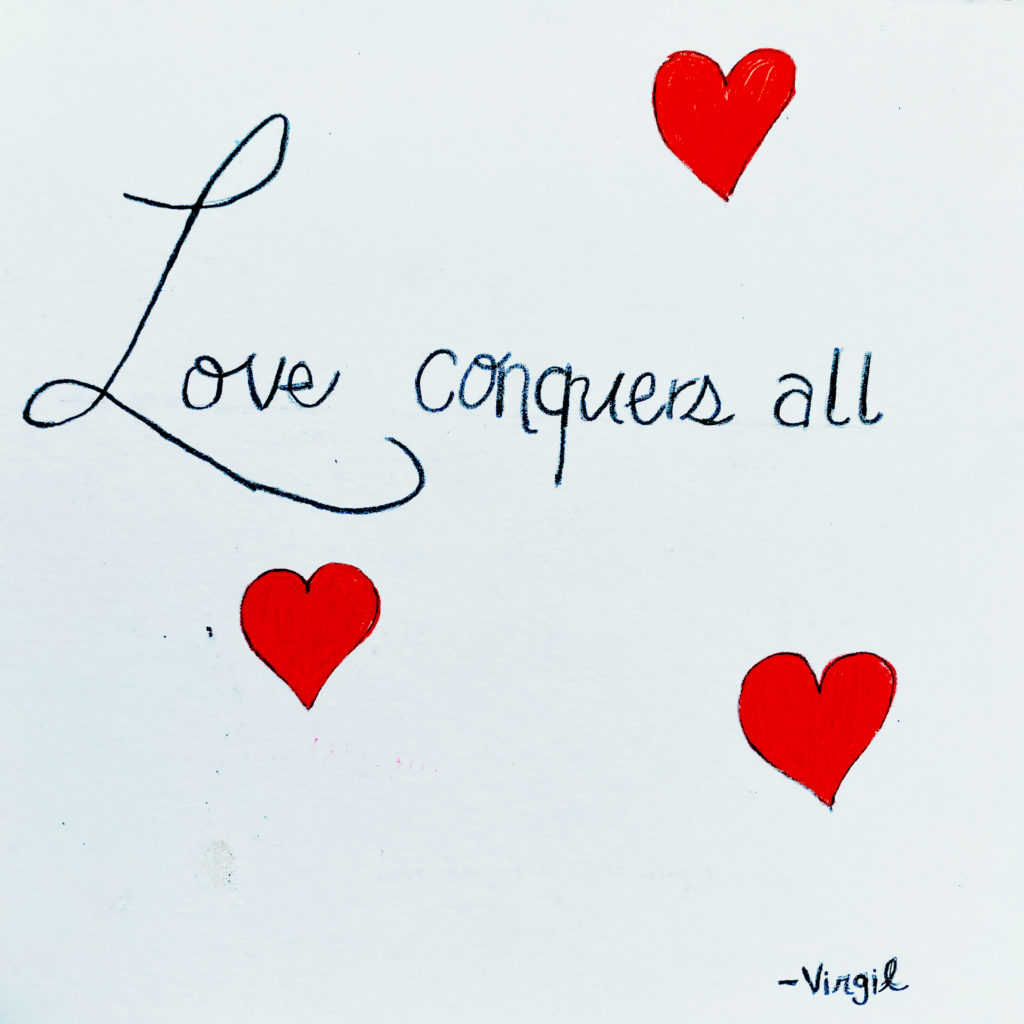 Love conquers all
-Virgil